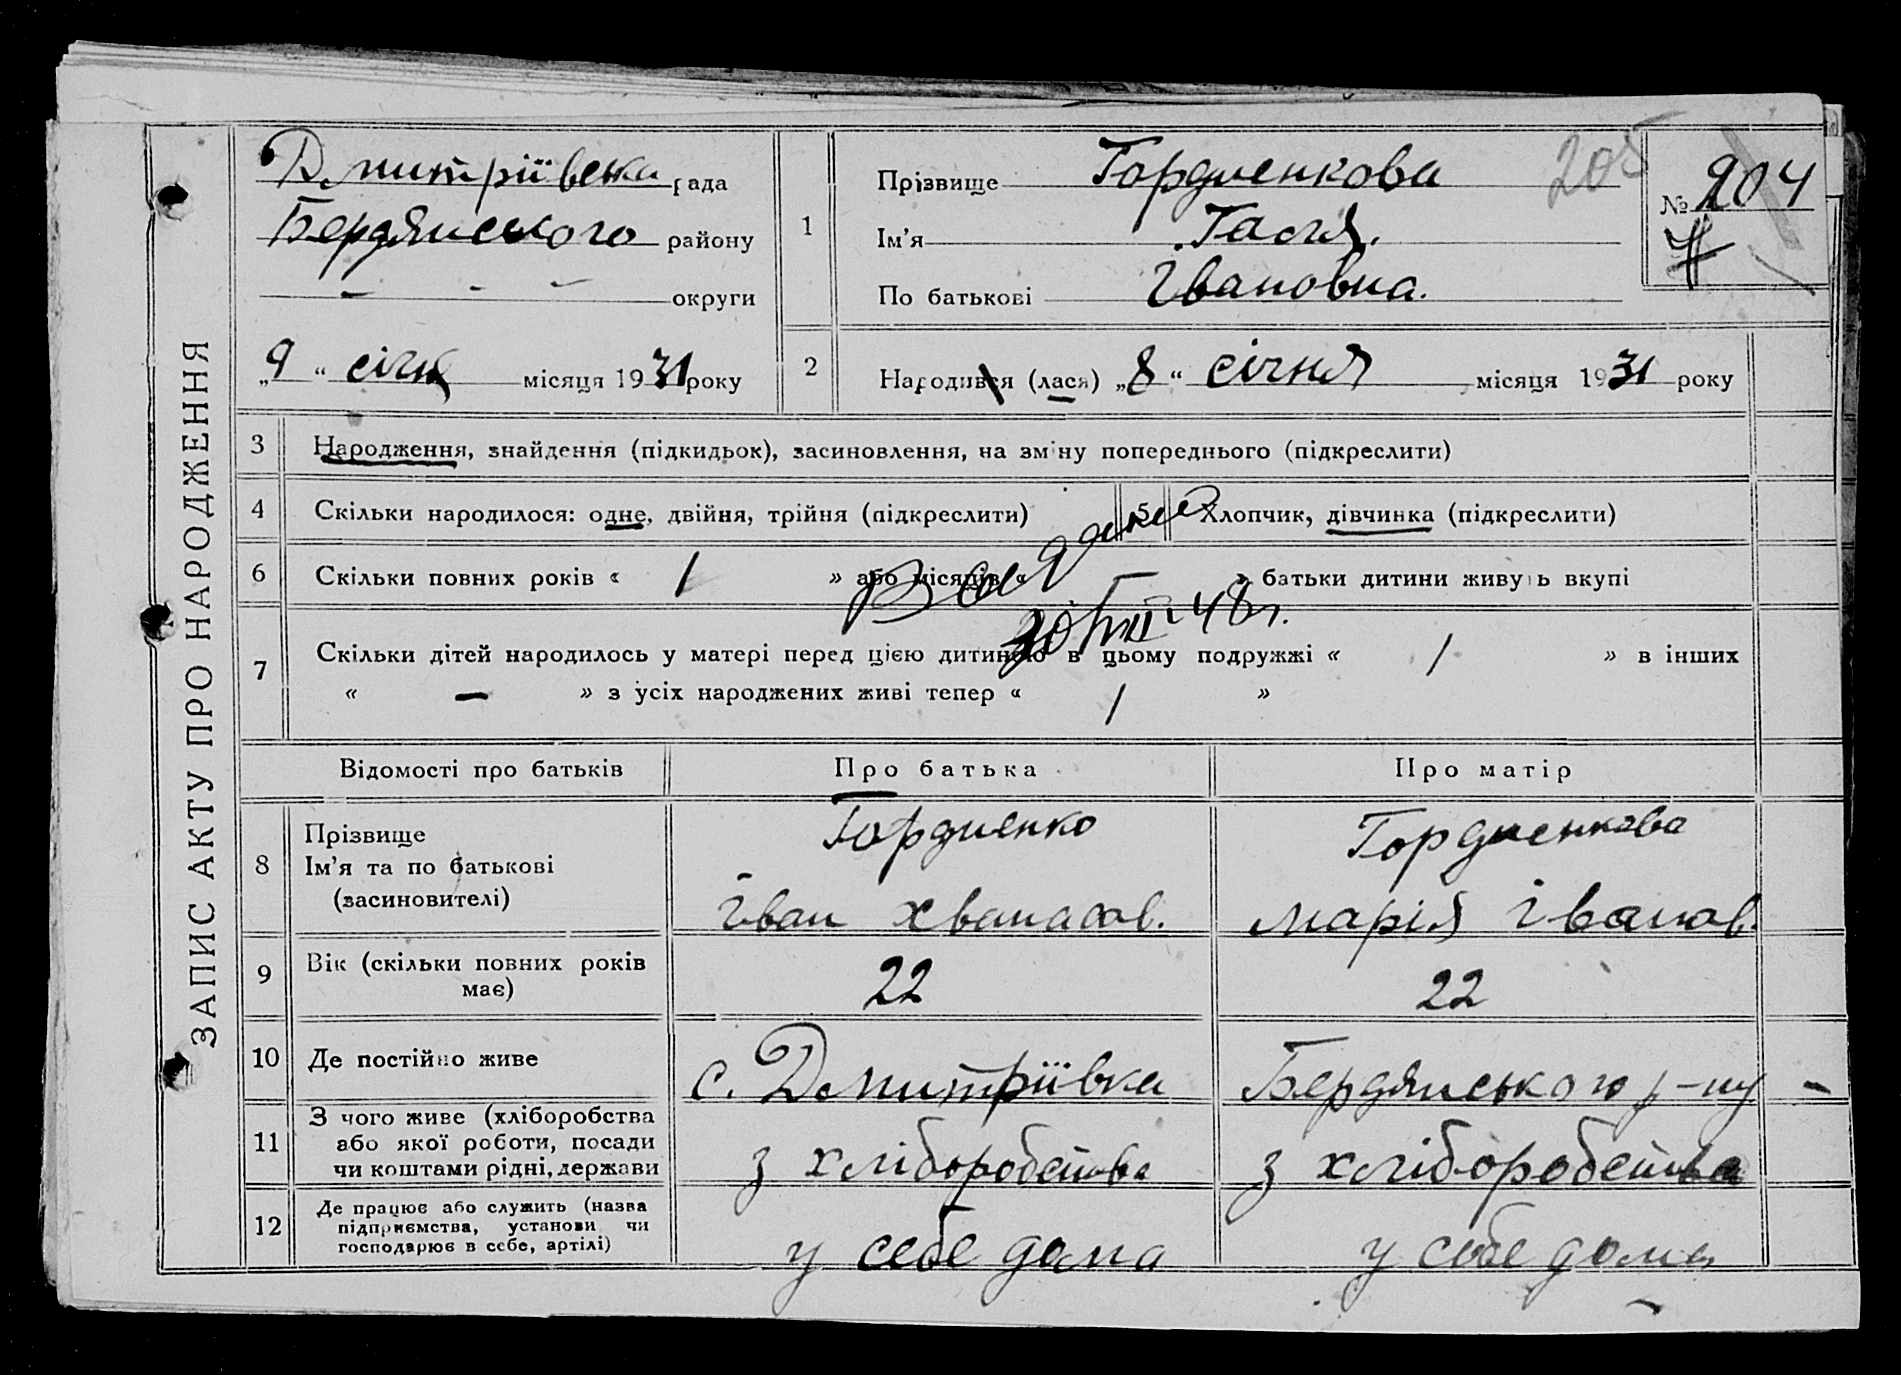 ЗАПИС АКТУ ПРО НАРОДЖЕННЯ
Дмитріївська рада
Бердянського району
— - - округи
„9“ січня місяця 1931 року
1
Прізвище Гордиенкова
Ім'я Гася.
По батькові Івановна.
205
№ 204
7
2
Народився (лася) „8“ січня місяця 1931 року
3 Народження, знайдення (підкидьок), засиновлення, на зміну попереднього (підкреслити)
4 Скільки народилося: одне, двійня, трійня (підкреслити) 5 Хлопчик, дівчинка (підкреслити)
6 Скільки повних років « 1 » або місяців « » батьки дитини живуть вкупі
30/VII-48г.
7 Скільки дітей народилось у матері перед цією дитиною в цьому подружжі « 1 » в інших
« — » з усіх народжених живі тепер « 1 »
Відомості про батьків Про батька Про матір
8 Прізвище Гордиенко Гордиенкова
Ім'я та по батькові
(засиновителі) Іван Хванасов. Марія Іванов.
9 Вік (скільки повних років має) 22 22
10 Де постійно живе с. Дмитріївка Бердянського р-ну -
11 З чого живе (хліборобства
або якої роботи, посади
чи коштами рідні, держави з хліборобства з хліборобства
12 Де працює або служить (назва
підприємства, установи чи
господарює в себе, артілі) у себе дома у себе дома